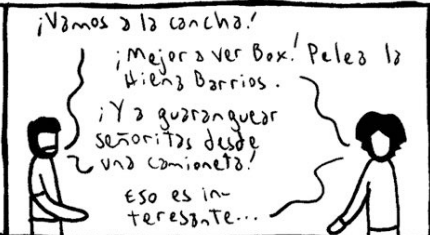 ¡Vamos a la cancha!
¡Mejor a ver Box! Pelea la
Hiena Barrios.
¡Y a guaranguear
señoritas desde
una camioneta!
Eso es in-
teresante...